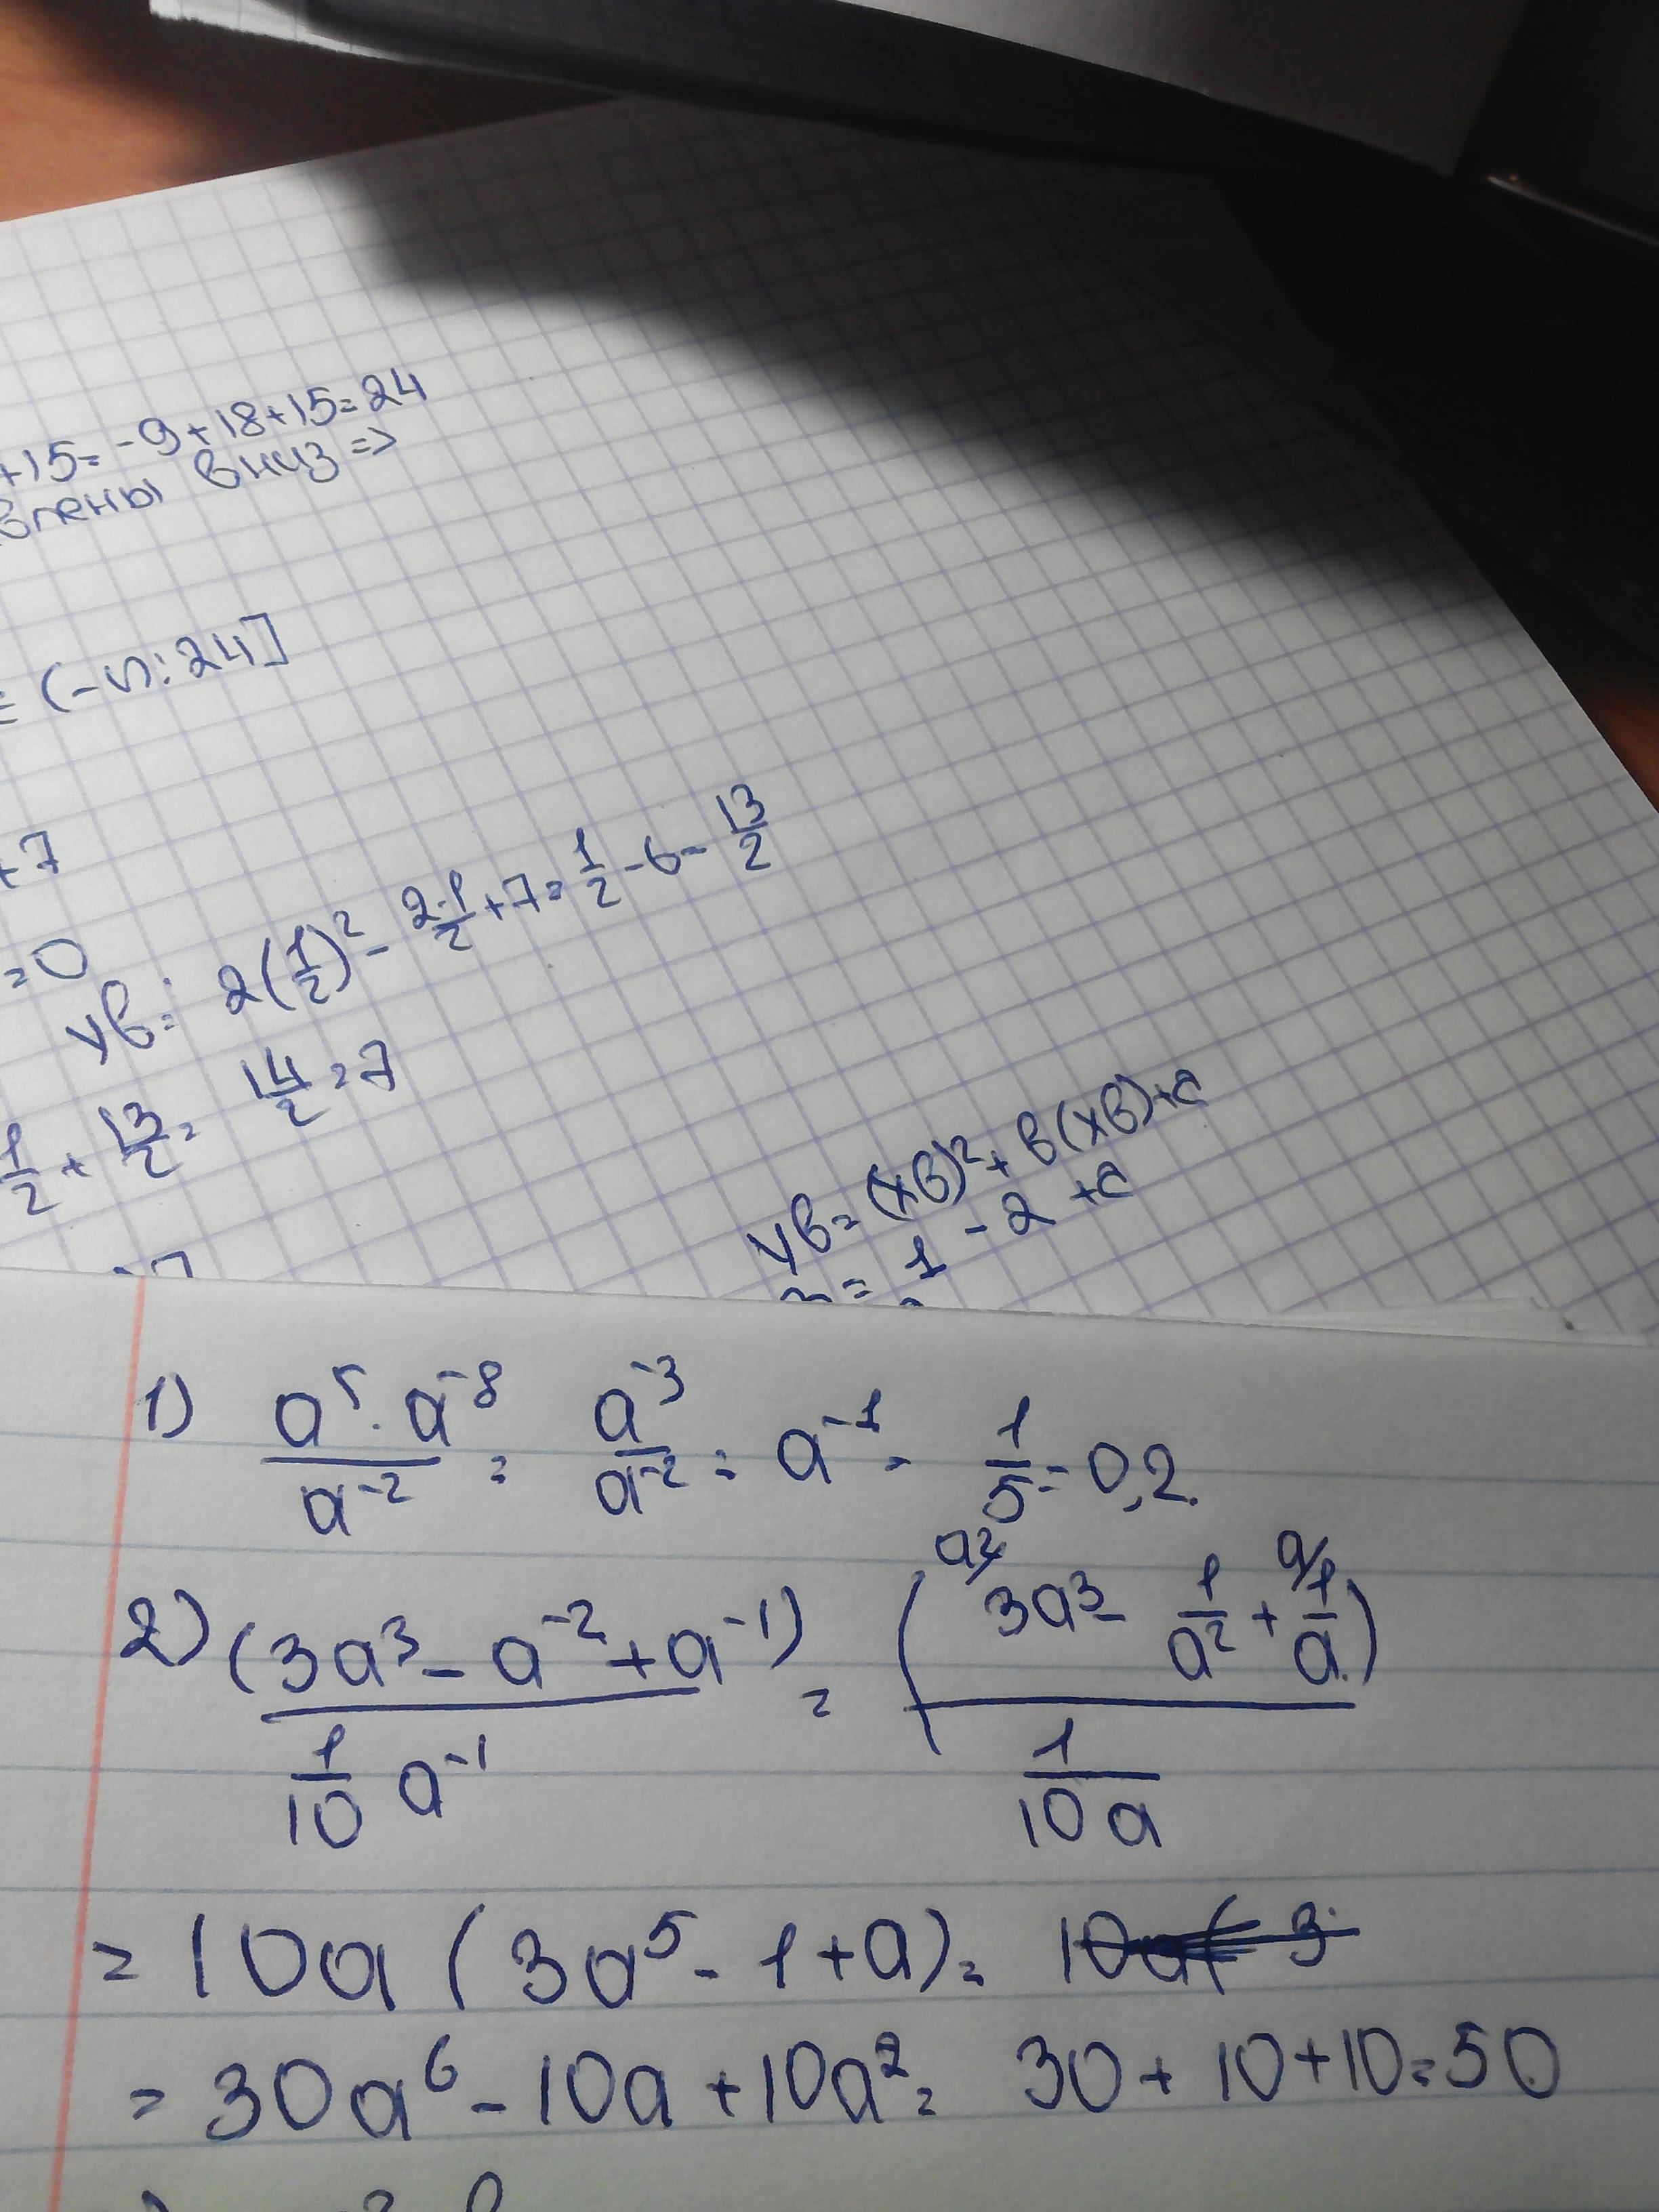 +15=-9+18+15=24
влены вниз =>
(-∞; 24]
+7
=0
yв= 2(1/2)² - 2·1/2 + 7 = 1/2 - 6 = 13/2
1/2 + 13/2 = 14/2 = 7
yв = (xв)² + в(xв)+c
= 1 - 2 + c
1) a⁵·a⁻⁸/a⁻² = a⁻³/a⁻² = a⁻¹ = 1/5 = 0,2.
2) (3a³ - a⁻² + a⁻¹)/(1/10 a⁻¹) = (a²/ 3a³ - 1/a² + a/ 1/a)/(1/10a)
= 10a (3a⁵ - 1 + a) =
= 30a⁶ - 10a + 10a² = 30 + 10 + 10 = 50